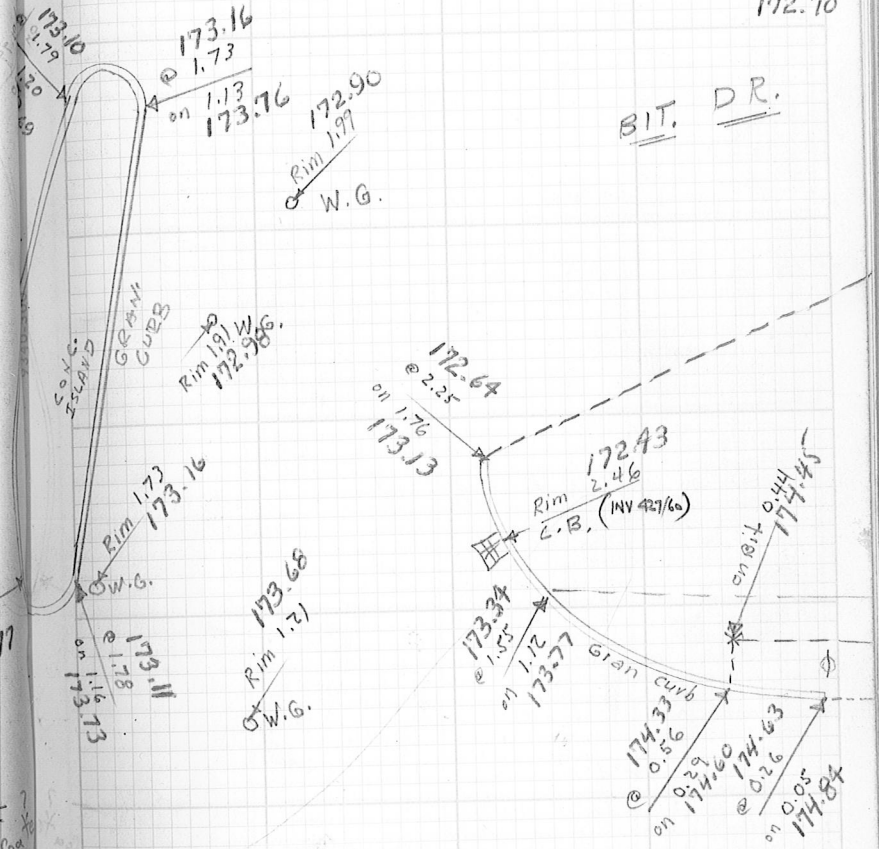 172.70
173.10
@ 1.79
1.20
69
173.16
@ 1.73
on 1.13
173.76
172.90
Rim 1.99
W.G.
BIT. DR.
CONC.
ISLAND
GRAN.
CURB
W.G.
Rim 1.91
172.98
172.64
@ 2.25
on 1.76
173.13
172.43
Rim 2.46
C.B. (INV 427/60)
on Bit 0.44
174.45
Rim 1.73
173.16
W.G.
173.11
@ 1.78
on 1.16
173.73
173.68
Rim 1.21
W.G.
173.34
@ 1.55
on 1.12
173.77
Gran Curb
174.33
@ 0.56
on 0.29
174.60
174.63
@ 0.26
on 0.05
174.84